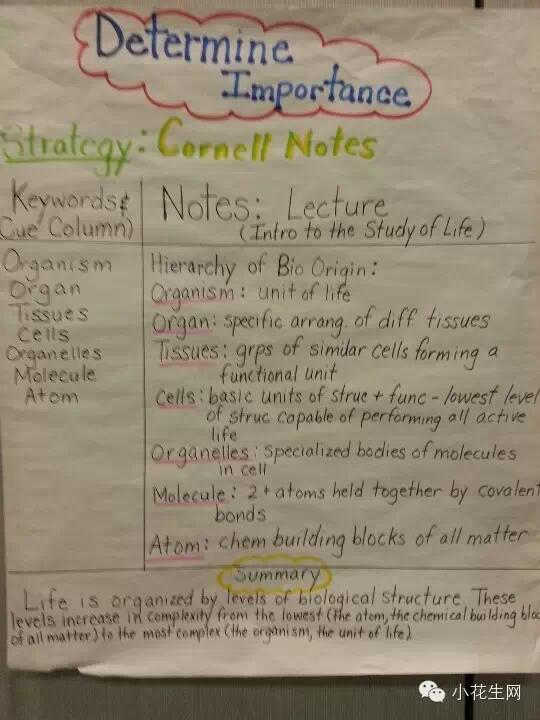 Determine
Importance
Strategy: Cornell Notes
Keywords &
Cue Column)
Notes: Lecture
(Intro to the Study of Life)
Organism
Organ
Tissues
Cells
Organelles
Molecule
Atom
Hierarchy of Bio Origin:
Organism: unit of life
Organ: specific arrang. of diff tissues
Tissues: grps of similar cells forming a
functional unit
Cells: basic units of struc + func - lowest level
of struc capable of performing all active
life
Organelles: specialized bodies of molecules
in cell
Molecule: 2+ atoms held together by covalent
bonds
Atom: chem building blocks of all matter
Summary
Life is organized by levels of biological structure. These
levels increase in complexity from the lowest (the atom, the chemical building bloc
of all matter) to the most complex (the organism, the unit of life).
小花生网